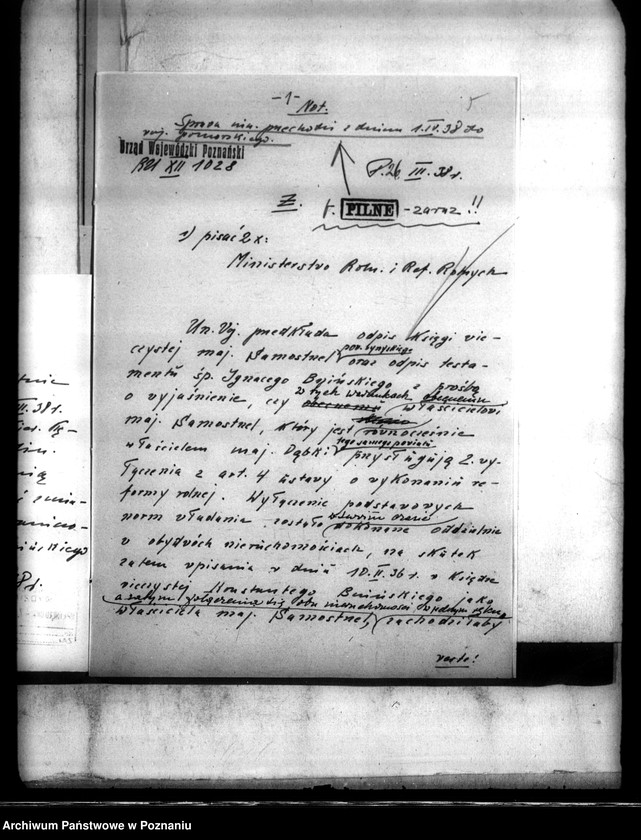 -1-
Not.
Sprawa nin. przechodzi z dniem 1.IV.38 do
woj. Pomorskiego.
Urząd Wojewódzki Poznański
RU XII 1028
P. 26 III. 38 r.
Z.
t. PILNE - zaraz !!
1) pisać 2 x:
Ministerstwo Roln. i Ref. Rolnych
Urz. Woj. przedkłada odpis Księgi wie-
czystej maj. Samostrzel pow. wyrzyskiego oraz odpis testa-
mentu śp. Ignacego Bnińskiego z prośbą
o wyjaśnienie, czy w tych warunkach obecnemu właścicielowi
maj. Samostrzel, który jest równocześnie
właścicielem maj. Dąbki tego samego powiatu przysługują 2 wy-
łączenia z art. 4 ustawy o wykonaniu re-
formy rolnej. Wyłączenie podstawowych
norm władania zostało w swoim czasie dokonane oddzielnie
w obydwóch nieruchomościach, na skutek
zatem wpisania w dniu 10.II.36 r. w Księdze
wieczystej Konstantego Bnińskiego jako
a zatym połączenia się obu nieruchomości w jednym ręku
właściciela maj. Samostrzel, zachodziłaby
verte!
III.38 r.
Archiwum Państwowe w Poznaniu